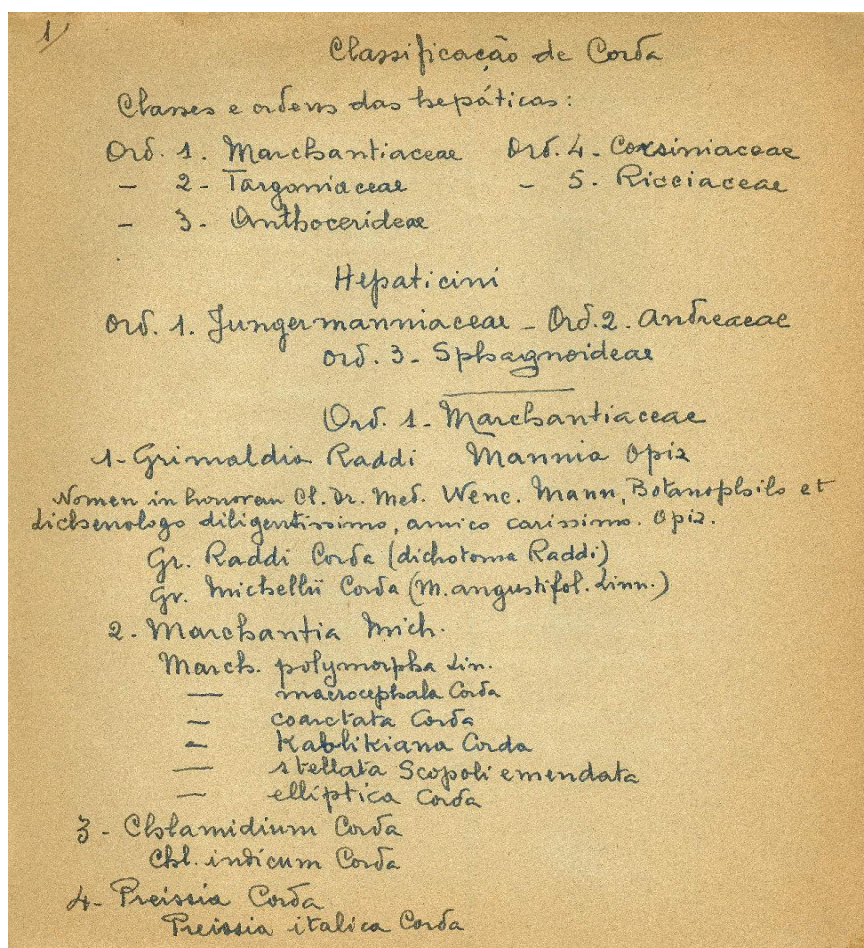 1)
Classificação de Corda
Classes e ordens das hepáticas:
Ord. 1. Marchantiaceae Ord. 4 - Corsiniaceae
- 2 - Targoniaceae - 5. Ricciaceae
- 3 - Anthocerideae
Hepaticini
Ord. 1. Jungermanniaceae - Ord. 2. Andreaeae
Ord. 3 - Sphagnoideae
Ord. 1 - Marchantiaceae
1 - Grimaldia Raddi Mannia Opiz
Nomen in honorem Cl. Dr. Med. Wenc. Mann, Botanophilo et
Lichenologo diligentissimo, amico carissimo. Opiz.
Gr. Raddi Corda (dichotoma Raddi)
Gr. Michellii Corda (M. angustifol. Linn.)
2 - Marchantia Mich.
March. polymorpha Lin.
— macrocephala Corda
— coarctata Corda
— Kablikiana Corda
— stellata Scopoli emendata
— elliptica Corda
3 - Chlamidium Corda
Chl. indicum Corda
4 - Preissia Corda
Preissia italica Corda